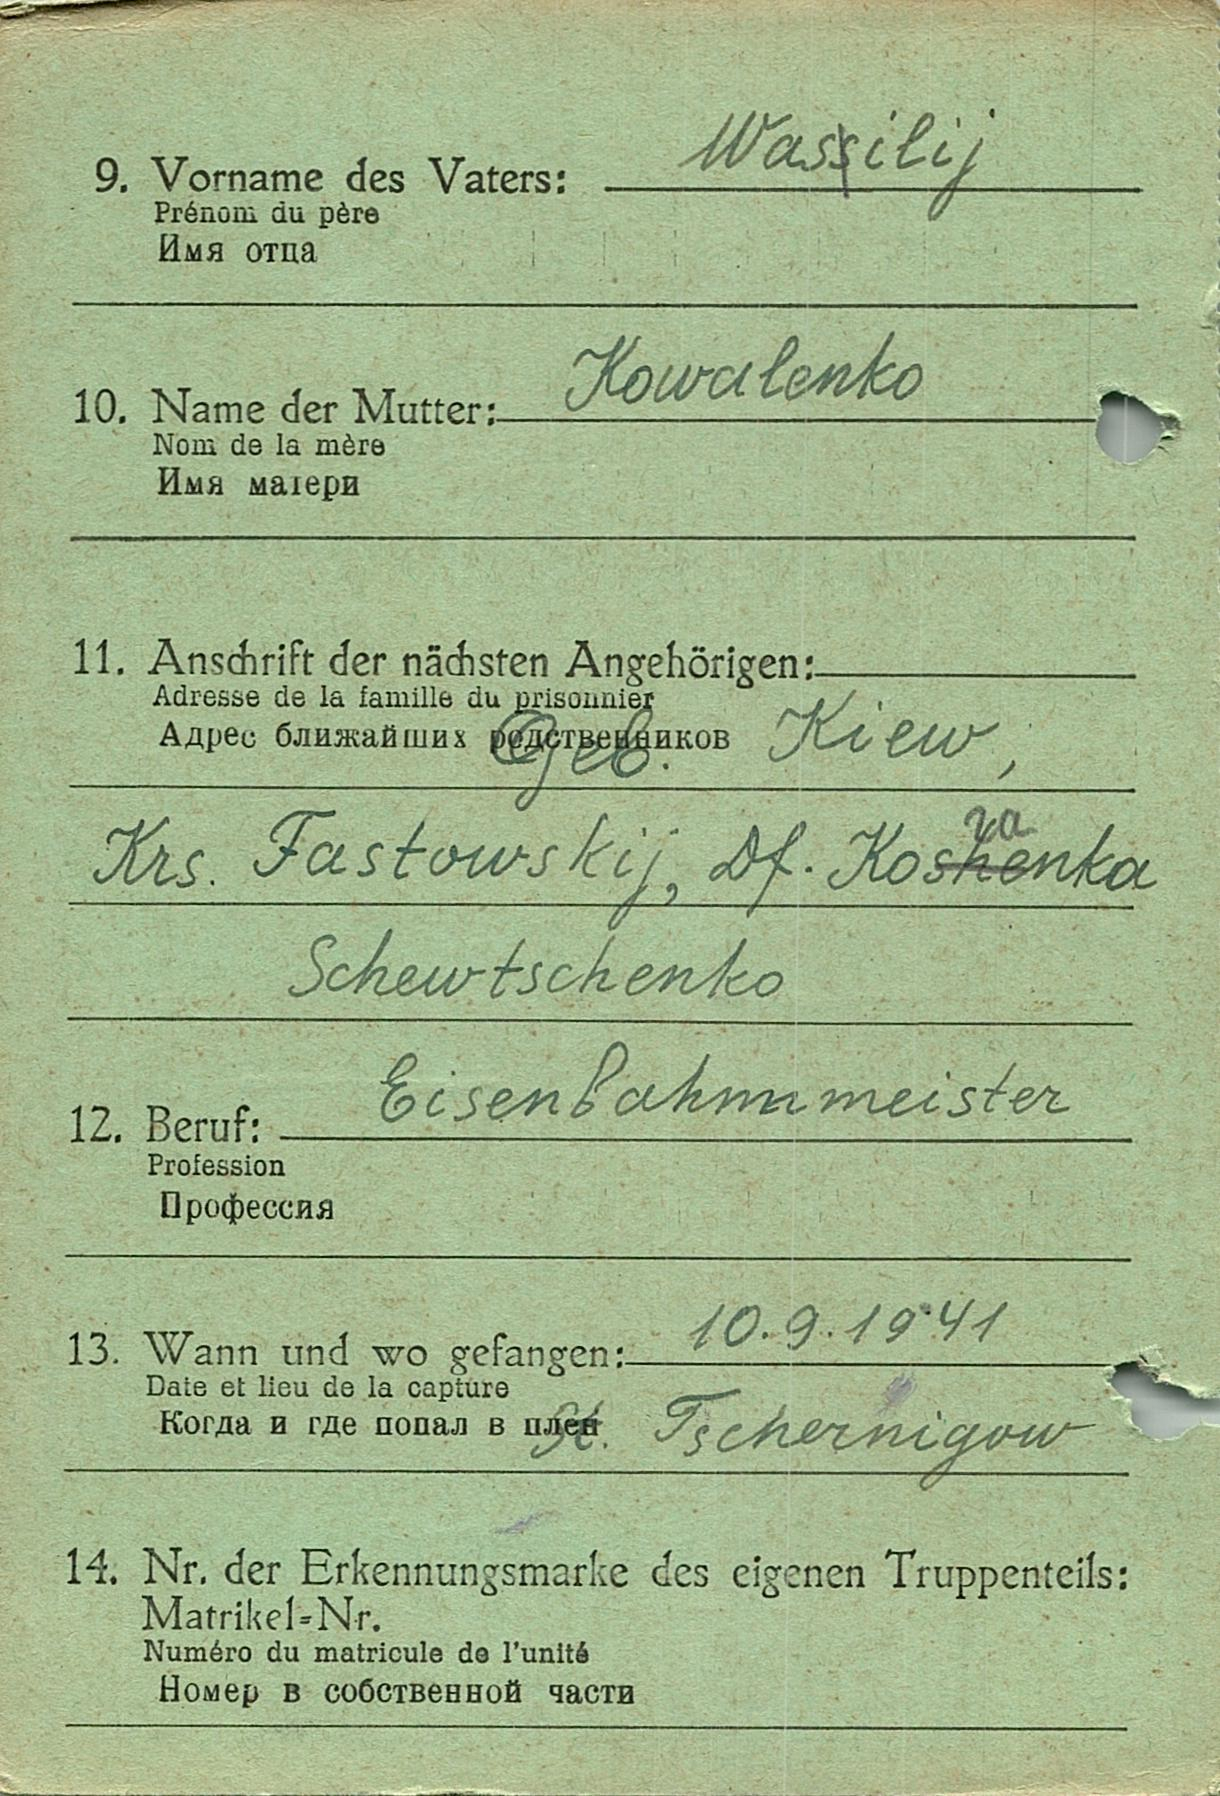 9. Vorname des Vaters: Wassilij
Prénom du père
Имя отца
10. Name der Mutter: Kowalenko
Nom de la mère
Имя матери
11. Anschrift der nächsten Angehörigen:
Adresse de la famille du prisonnier
Адрес ближайших родственников Geb. Kiew,
ya
Krs. Fastowskij, Df. Koshenka
Schewtschenko
12. Beruf: Eisenbahnmeister
Profession
Профессия
13. Wann und wo gefangen: 10.9.1941
Date et lieu de la capture
Когда и где попал в плен St. Tschernigow
14. Nr. der Erkennungsmarke des eigenen Truppenteils:
Matrikel-Nr.
Numéro du matricule de l'unité
Номер в собственной части